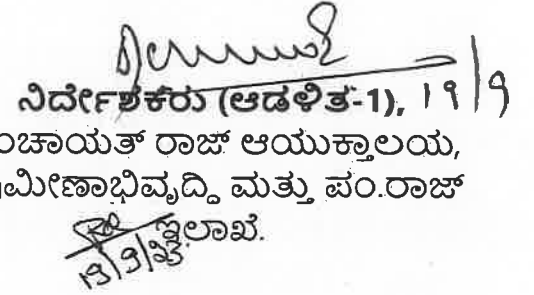 ನಿರ್ದೇಶಕರು (ಆಡಳಿತ-1), 19/9
ಂಚಾಯತ್ ರಾಜ್ ಆಯುಕ್ತಾಲಯ,
ಮೀಣಾಭಿವೃದ್ಧಿ ಮತ್ತು ಪಂ.ರಾಜ್
ಇಲಾಖೆ.
19/9/23